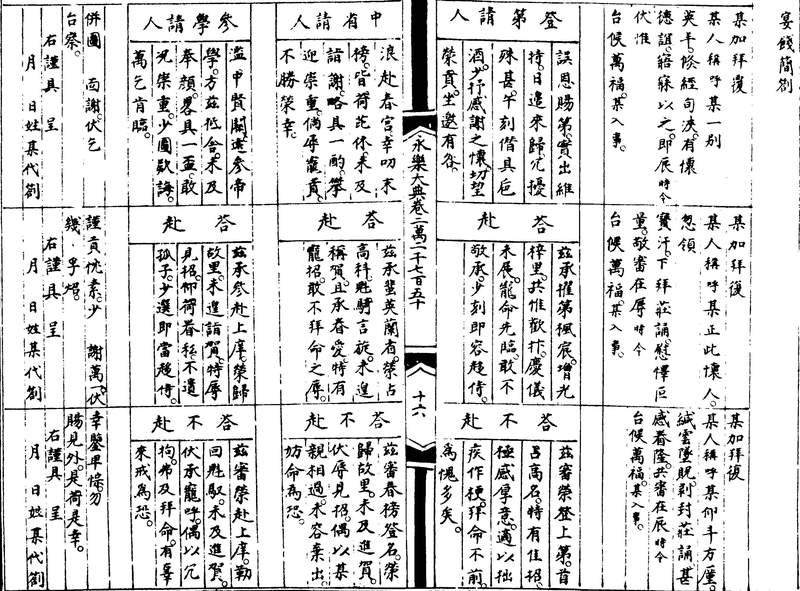 宴餞簡劄
某加拜覆
某人稱呼某一别
英手倏經旬浹有懷
德誼寤寐以之即辰時令
伏惟
台候萬福某入事
某加拜復
某人稱呼某正此懷人
忽領
寳汗下拜莊誦慰懌叵
量敬審在辱時令
台候萬福某入事
某加拜復
某人稱呼某仰斗方
緘雲墜貺剥封莊誦甚
感眷隆共審在辰時令
台候萬福某入事
登第請人
誤恩賜第實出維
持日邉來歸冗擾
殊甚午刻偕具卮
酒少抒感謝之懷切望
榮賁坐邀有咎
答赴
兹承擢第楓宸増光
梓里共惟歡忭慶儀
未展寵命先臨敢不
敬承少刻即容趍侍
答不赴
兹審榮登上第首
吕高名特有佳招
極感厚意適以拙
疾作梗拜命不前
為愧多矣
永樂大典卷二萬二千七百五十
十六
中省請人
浪赴春宫幸叨末
榜皆荷庇休未及
請謝略具一酌攀
迎崇重倘辱寵賁
不勝榮幸
答赴
兹承蜚英蘭省榮占
高科甡騎言旋未遑
稱賀且承眷愛特有
寵招敢不拜命之辱
答不赴
兹審春榜登名榮
歸故里未及進賀
伏辱見招偶以某
親相過未容棄出
妨命為恐
參學請人
濫中賢關遶参帝
學方兹抵舍未及
奉顔畧具一盃敢
况崇重少圖欵誨
萬乞肯臨
答赴
兹承参赴上庠榮歸
故里未進請賀特辱
見招仰荷眷私不遺
孤子少選即當趍侍
答不赴
兹審榮赴上庠勒
回甡馭未及進賀
伏承寵呼偶以冗
拘弗及拜命有辜
來戒為恐
併圖 面謝伏乞
台察
右謹具 呈
月 日姓某代劄
謹賁忱素少 謝萬一伏
幾 孚炤
右謹具 呈
月 日姓某代劄
幸鑒卑悰勿
賜見外是荷是幸
右謹具 呈
月 日姓某代劄